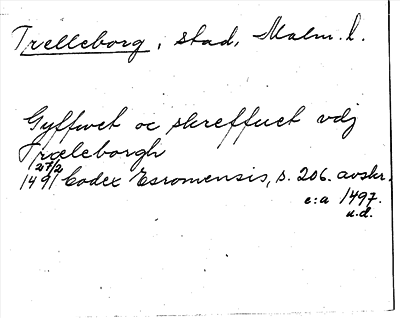 Trelleborg, stad, Malm. l.
Gyffwet oc skreffuet vdj
Træleborgh
27/2
1491 Codex Esromensis, s. 206. avskr.
c:a 1497.
u.d.